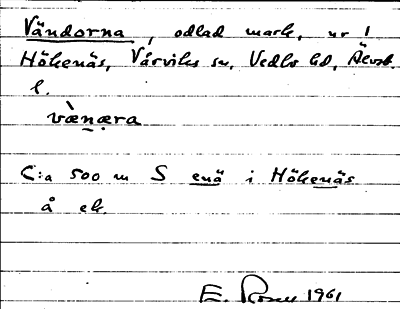 Vändorna, odlad mark, nr 1
Hökenäs, Vårviks sn, Vedbo hd, Älvsb.
l.
væ̀næra
C:a 500 m S enä i Hökenäs
å ek.
E. Rosen 1961